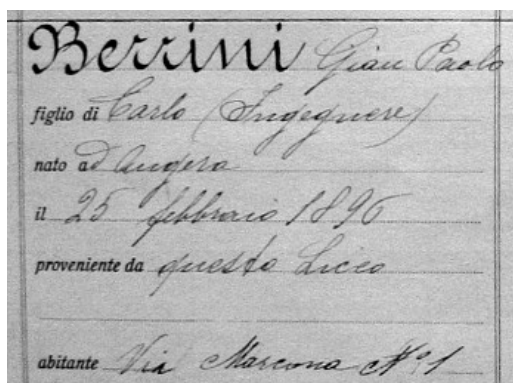 Berrini Gian Paolo
figlio di Carlo (Ingegnere)
nato ad Angera
il 25 febbraio 1896
proveniente da questo Liceo
abitante Via Marcona N° 1